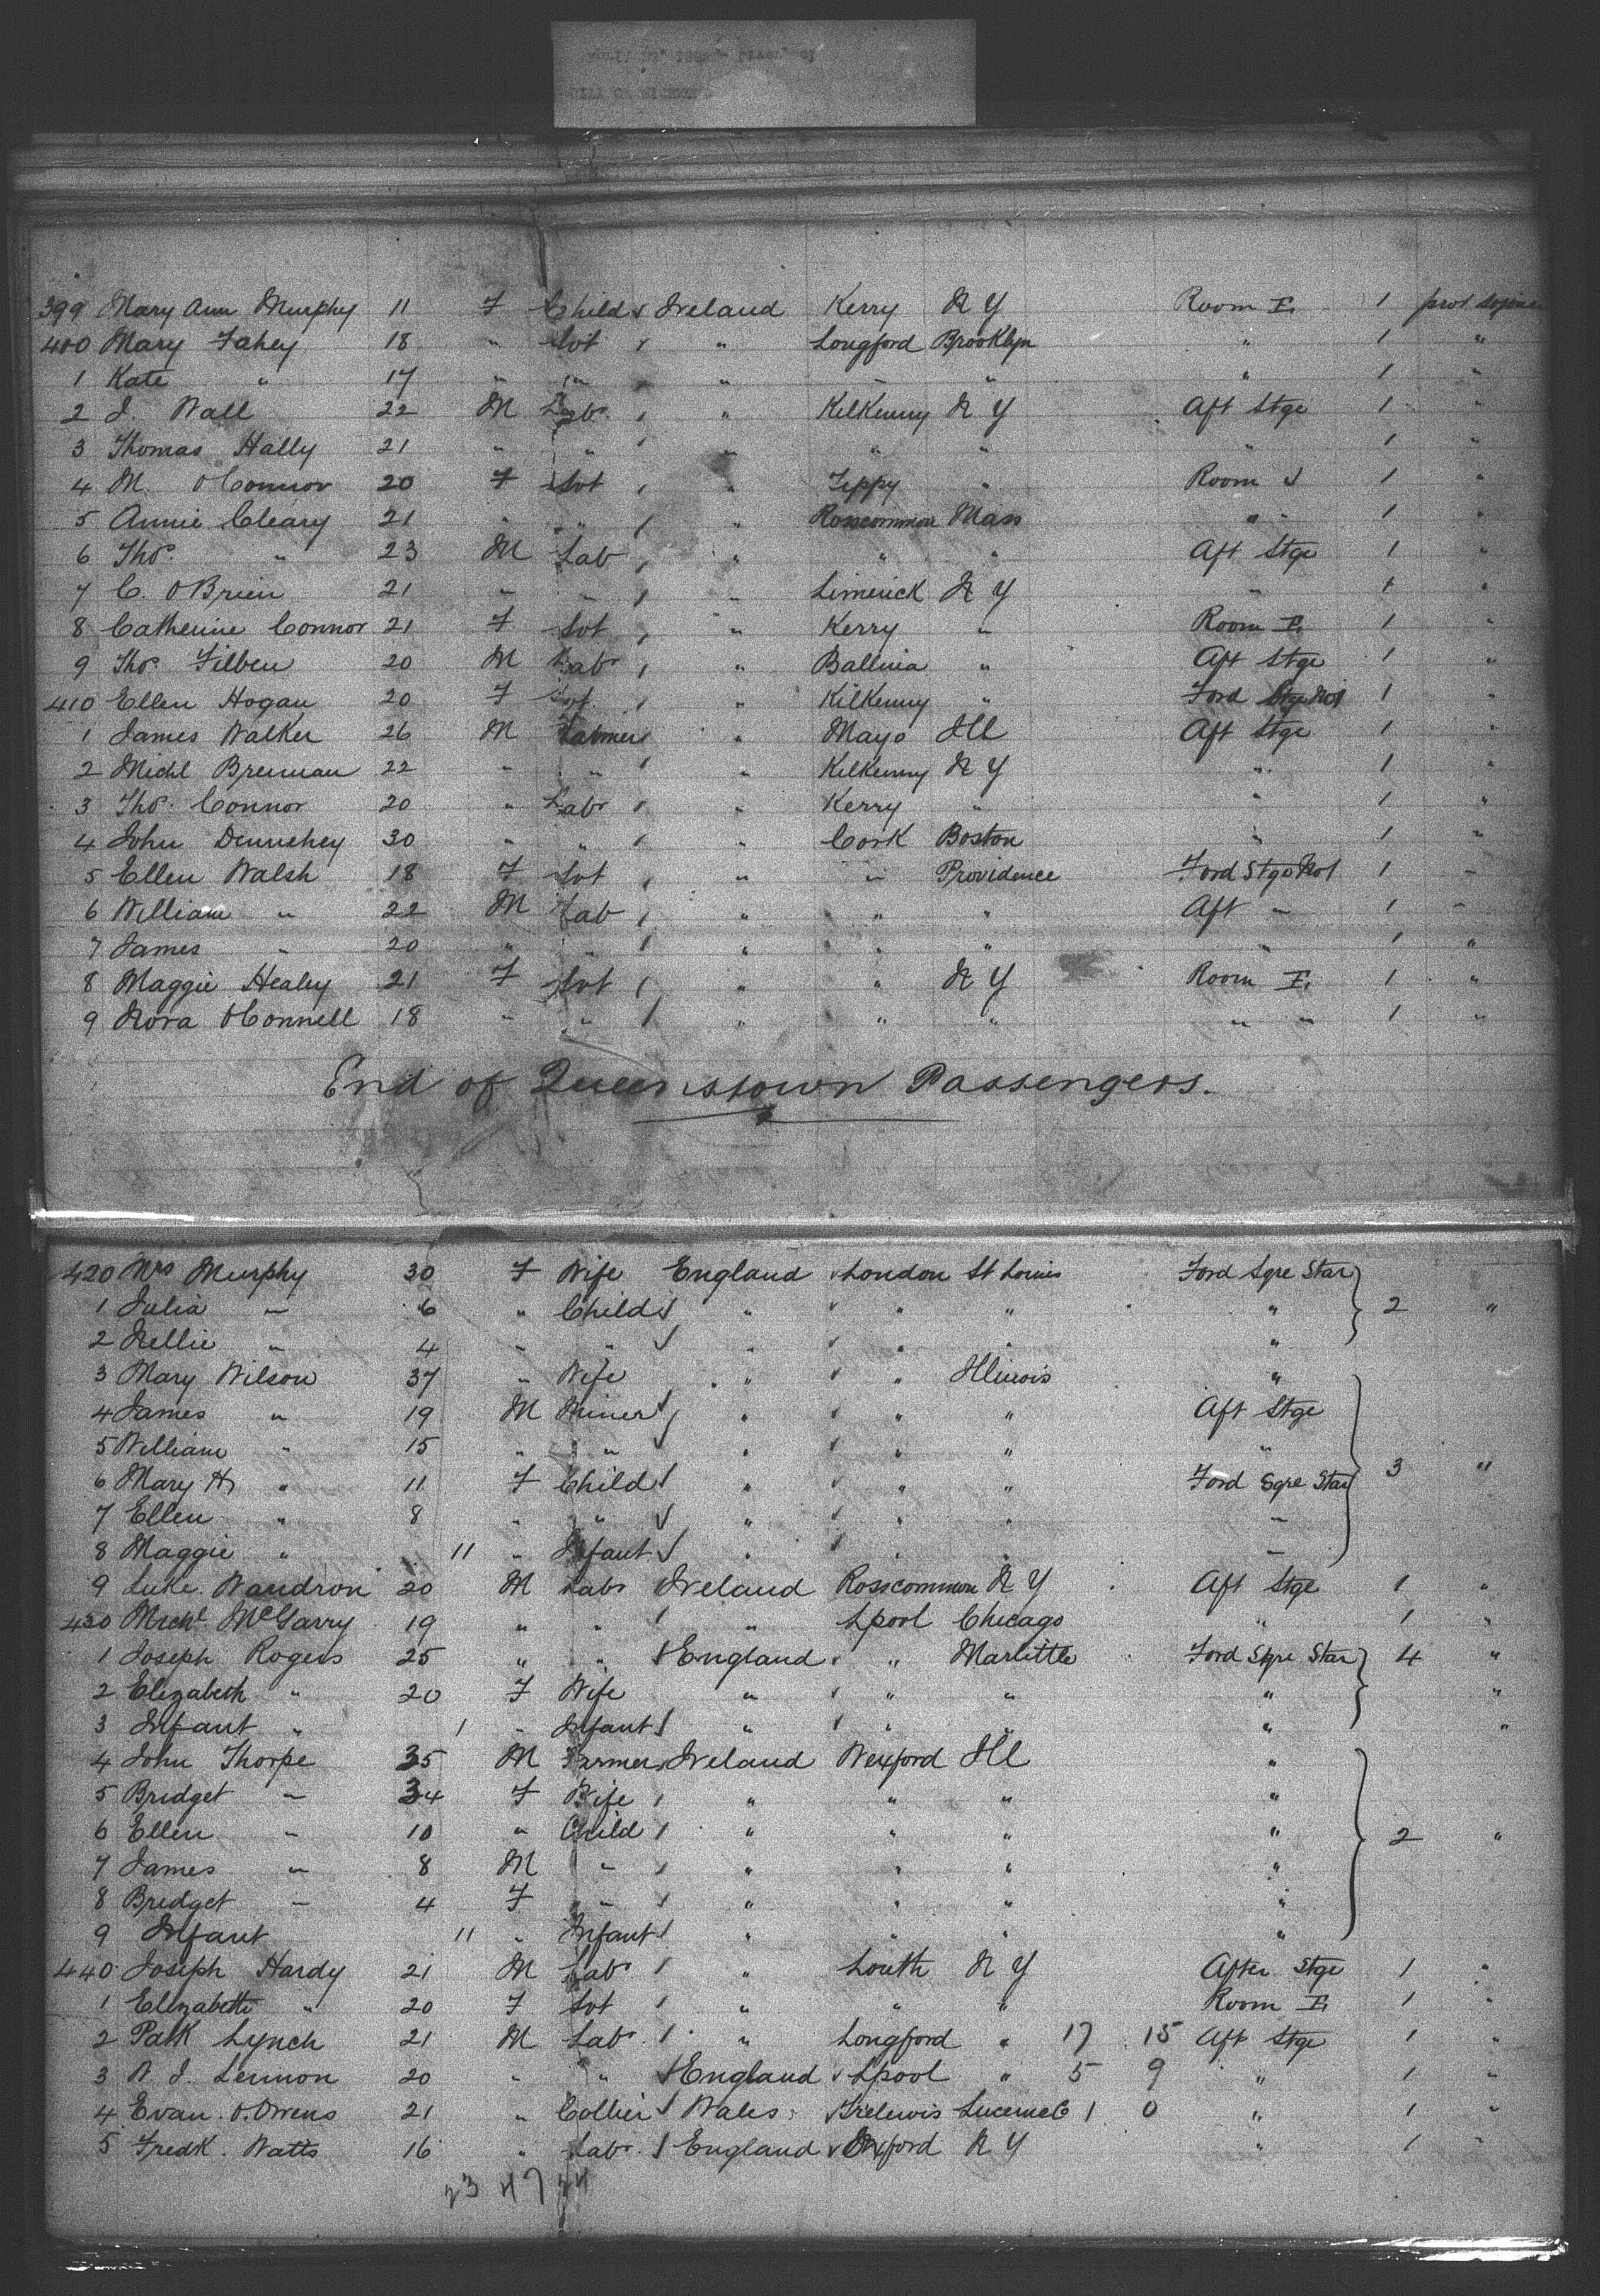 399 Mary Ann Murphy 11 F Child Ireland Kerry N Y Room E. 1 prot sojour
400 Mary Fahey 18 " Svt " Longford Brooklyn " 1 "
1 Kate " 17 " " " " " " 1 "
2 J. Wall 22 M Labr " Kilkenny N Y Aft Stge 1 "
3 Thomas Hally 21 " " " " " " 1 "
4 M. OConnor 20 F Svt " Tippy " Room J 1 "
5 Annie Cleary 21 " " " Roscommon Mass " " 1 "
6 Thos. " 23 M Lab " " " Aft Stge 1 "
7 C. OBrien 21 " " " Limerick N Y " 1 "
8 Catherine Connor 21 F Svt " Kerry " Room E. 1 "
9 Thos. Filben 20 M Labr " Ballina " Aft Stge 1 "
410 Ellen Hogan 20 F Svt " Kilkenny " Ford Stge No1 1 "
1 James Walker 26 M Farmer " Mayo Ill Aft Stge 1 "
2 Michl Brennan 22 " " " Kilkenny N Y " 1 "
3 Thos. Connor 20 " Labr " Kerry " " 1 "
4 John Dennehey 30 " " " Cork Boston " 1 "
5 Ellen Walsh 18 F Svt " " Providence Ford Stge No1 1 "
6 William " 22 M Lab " " " Aft " 1 "
7 James " 20 " " " " " " 1 "
8 Maggie Healey 21 F Svt " " N Y Room E. 1 "
9 Nora OConnell 18 " " " " " " " 1 "
End of Queenstown Passengers.
420 Mrs Murphy 30 F Wife England London St Louis Ford Sgre Star
1 Julia " 6 " Child " " " " 2 "
2 Nellie " 4 " " " " " "
3 Mary Wilson 37 " Wife " " Illinois "
4 James " 19 M Miner " " " Aft Stge
5 William " 15 " " " " " "
6 Mary H " 11 F Child " " " Ford Sgre Star 3 "
7 Ellen " 8 " " " " " "
8 Maggie " 11 " Infant " " " "
9 Luke Wandron 20 M Labr Ireland Roscommon N Y Aft Stge 1 "
430 Michl McGarry 19 " " " Lpool Chicago " 1 "
1 Joseph Rogers 25 " " England " Marlittle Ford Sgre Star 4 "
2 Elizabeth " 20 F Wife " " " " "
3 Infant " 1 " Infant " " " " "
4 John Thorpe 35 M Farmer Ireland Wexford Ill "
5 Bridget " 34 F Wife " " " "
6 Ellen " 10 " Child " " " " 2 "
7 James " 8 M " " " " "
8 Bridget " 4 F " " " " "
9 Infant 11 " Infant " " " "
440 Joseph Hardy 21 M Labr " Louth N Y After Stge 1 "
1 Elizabeth " 20 F Svt " " " Room E. 1 "
2 Patk Lynch 21 M Labr " Longford " 17 15 Aft Stge 1 "
3 W J. Lennon 20 " " England Lpool " 5 9 " 1 "
4 Evan. O. Owens 21 " Collier Wales Trelewis 1 0 " 1 "
5 Fredk. Watts 16 " Labr. England Oxford N Y " 1 "
23 47 24